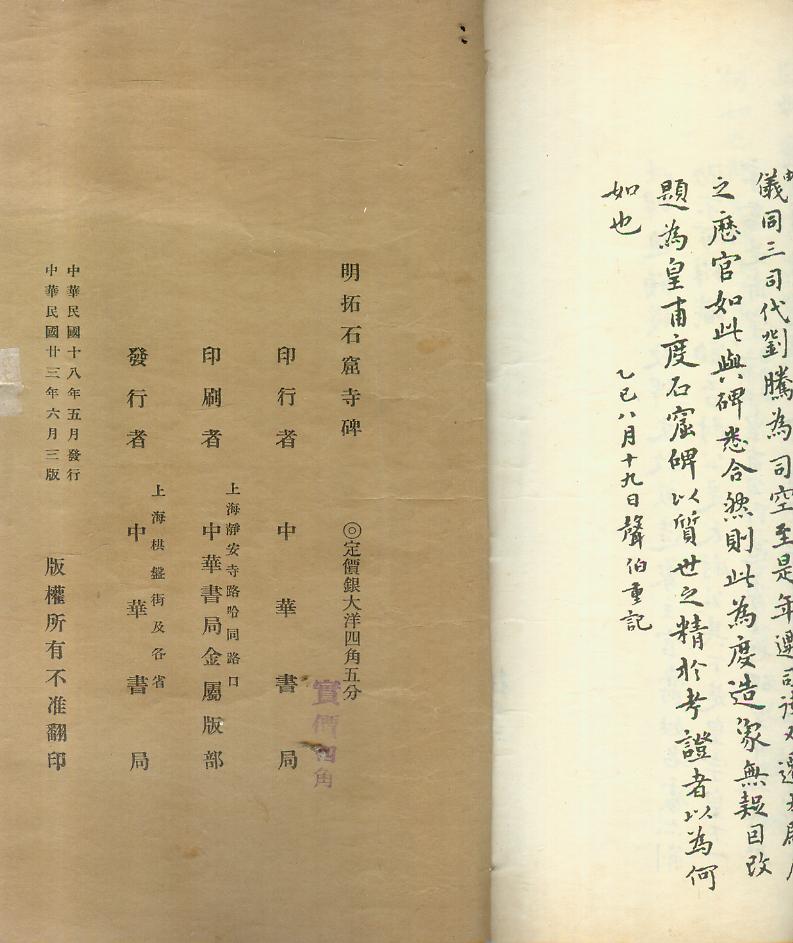 儀同三司代劉騰為司空至是年遷司
之歷官如此與碑悉合然則此為度造象無疑因改
題為皇甫度石窟碑以質世之精於考證者以為何
如也
乙巳八月十九日聲伯重記
明拓石窟寺碑
◎定價銀大洋四角五分
實價四角
印行者 中華書局
上海靜安寺路哈同路口
印刷者 中華書局金屬版部
上海棋盤街及各省
發行者 中華書局
中華民國十八年五月發行
中華民國廿三年六月三版
版權所有不准翻印